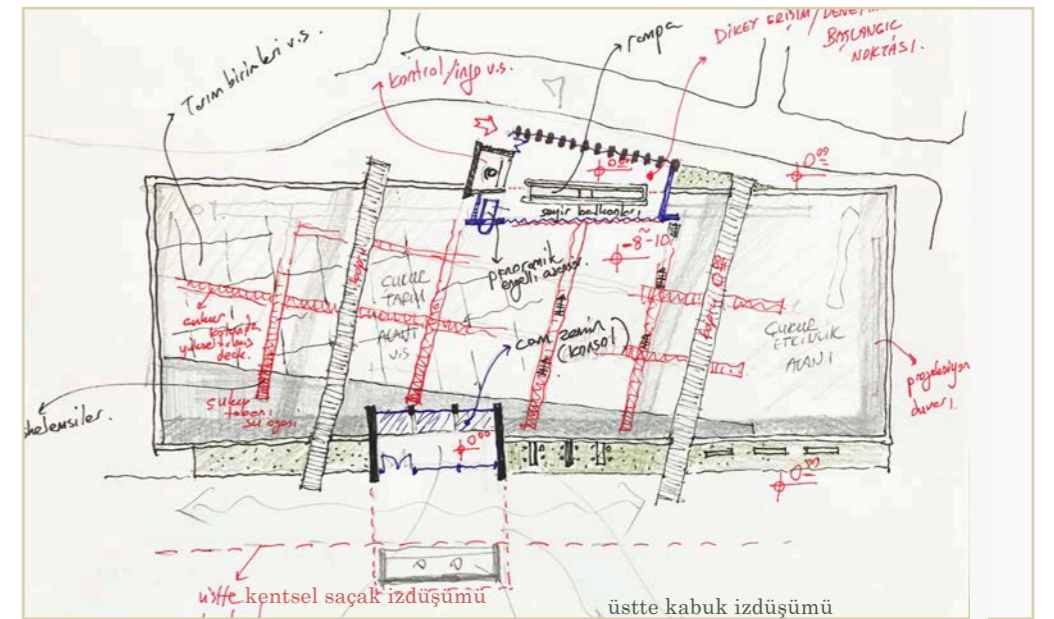 Tarım birimleri v.s.
kontrol/info v.s.
rampa
DİKEY ERİŞİM/DENETİM
BAŞLANGIÇ
NOKTASI.
0.00
0.00
seyir balkonları
-8~-10
panoramik
engelli asansör.
köprü
köprü 0.00
ÇUKUR
TARIM
ALANI
v.s
cam zemin
(konsol)
çukur
kotunda
yükseltilmiş
deck.
ÇUKUR
ETKİNLİK
ALANI
projeksiyon
duvarı.
iskelemsiler.
çukur
tabanı
su ögesi
0.00
0.00
üstte kentsel saçak izdüşümü
üstte kabuk izdüşümü